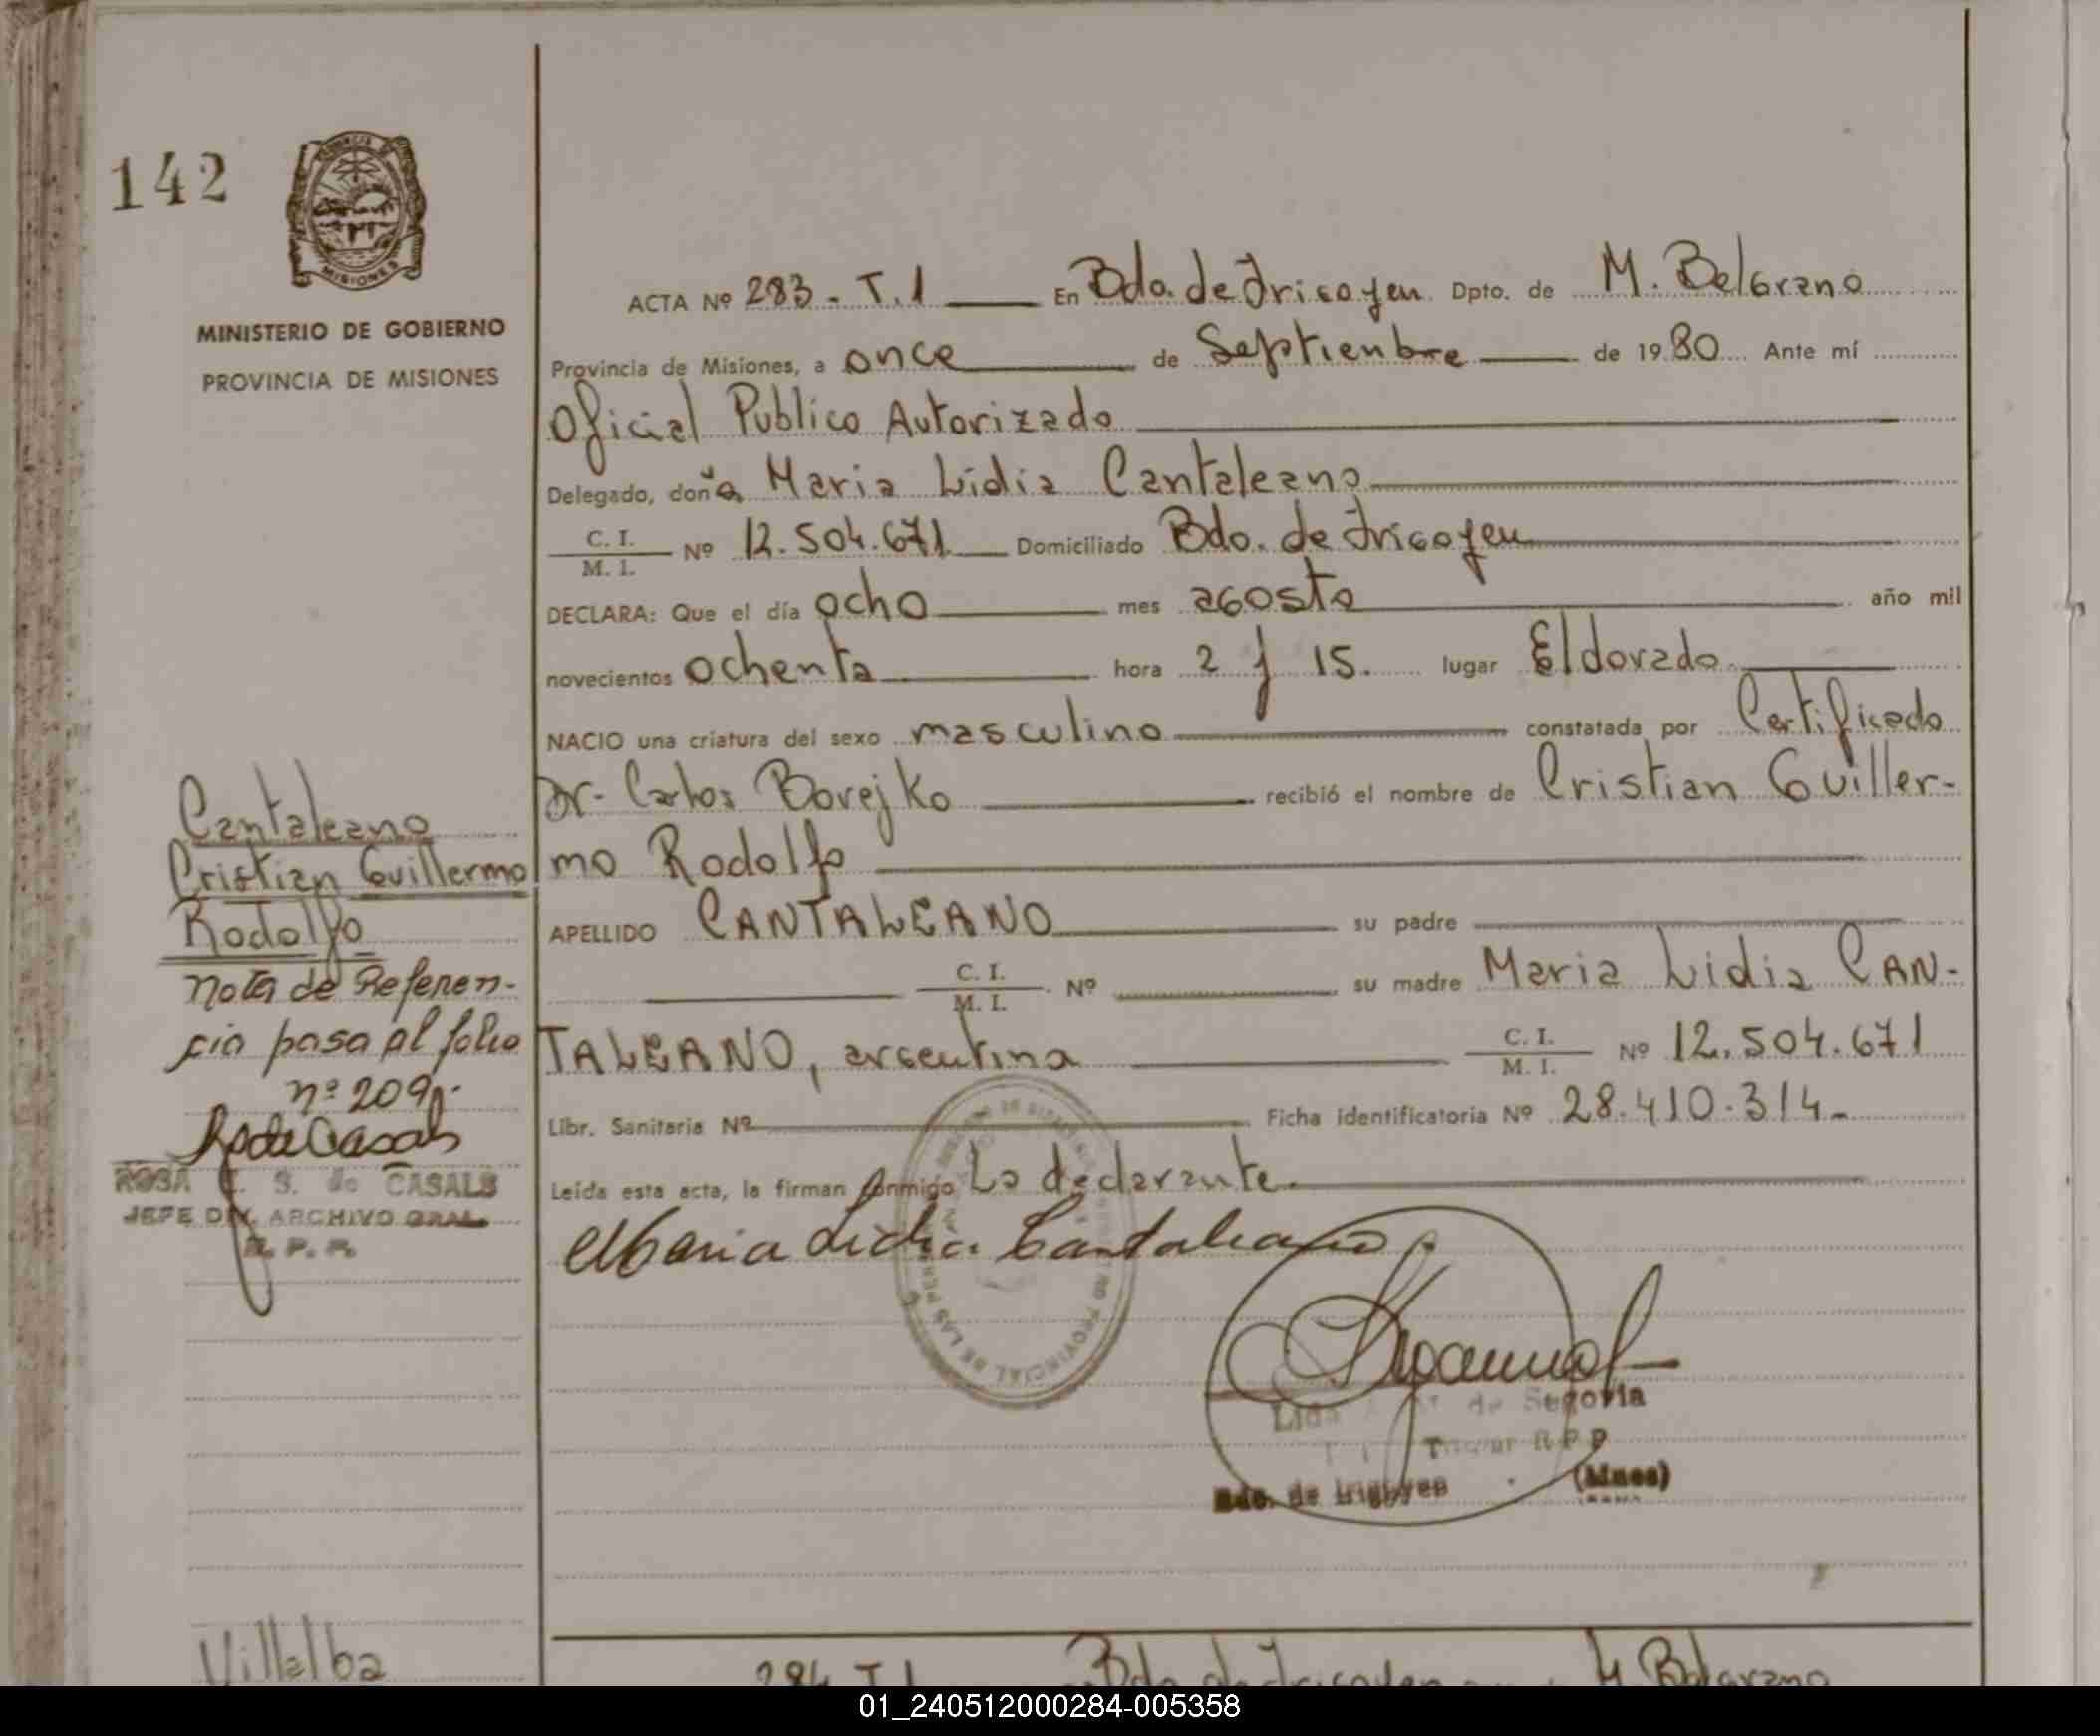 142
MISIONES
MINISTERIO DE GOBIERNO
PROVINCIA DE MISIONES
ACTA Nº 283 - T. 1 En Bdo. de Irigoyen Dpto. de M. Belgrano
Provincia de Misiones, a once de Septienbre de 1980 Ante mí
Oficial Publico Autorizado
Delegado, doña Maria Lidia Cantaleano
C. I.
M. I. Nº 12.504.671 Domiciliado Bdo. de Irigoyen
DECLARA: Que el día ocho mes agosto año mil
novecientos ochenta hora 2 y 15. lugar Eldorado
NACIO una criatura del sexo masculino constatada por Certificado
Dr. Carlos Borejko recibió el nombre de Cristian Guiller-
mo Rodolfo
APELLIDO CANTALEANO su padre
C. I.
M. I. Nº su madre Maria Lidia CAN-
TALEANO, argentina C. I.
M. I. Nº 12.504.671
Libr. Sanitaria Nº Ficha identificatoria Nº 28.410.314-
Leída esta acta, la firman conmigo La declarante.
Maria Lidia Cantaleano
Lida de Segovia
R P P
Bdo. de Irigoyen (Mnes)
Cantaleano
Cristian Guillermo
Rodolfo
Nota de Referen-
cia pasa al folio
nº 209.
R de Casals
ROSA E. S. de CASALS
JEFE DIV. ARCHIVO GRAL.
R. P. P.
Villalba
284 T. 1 Bdo de Irigoyen M. Belgrano
01_240512000284-005358